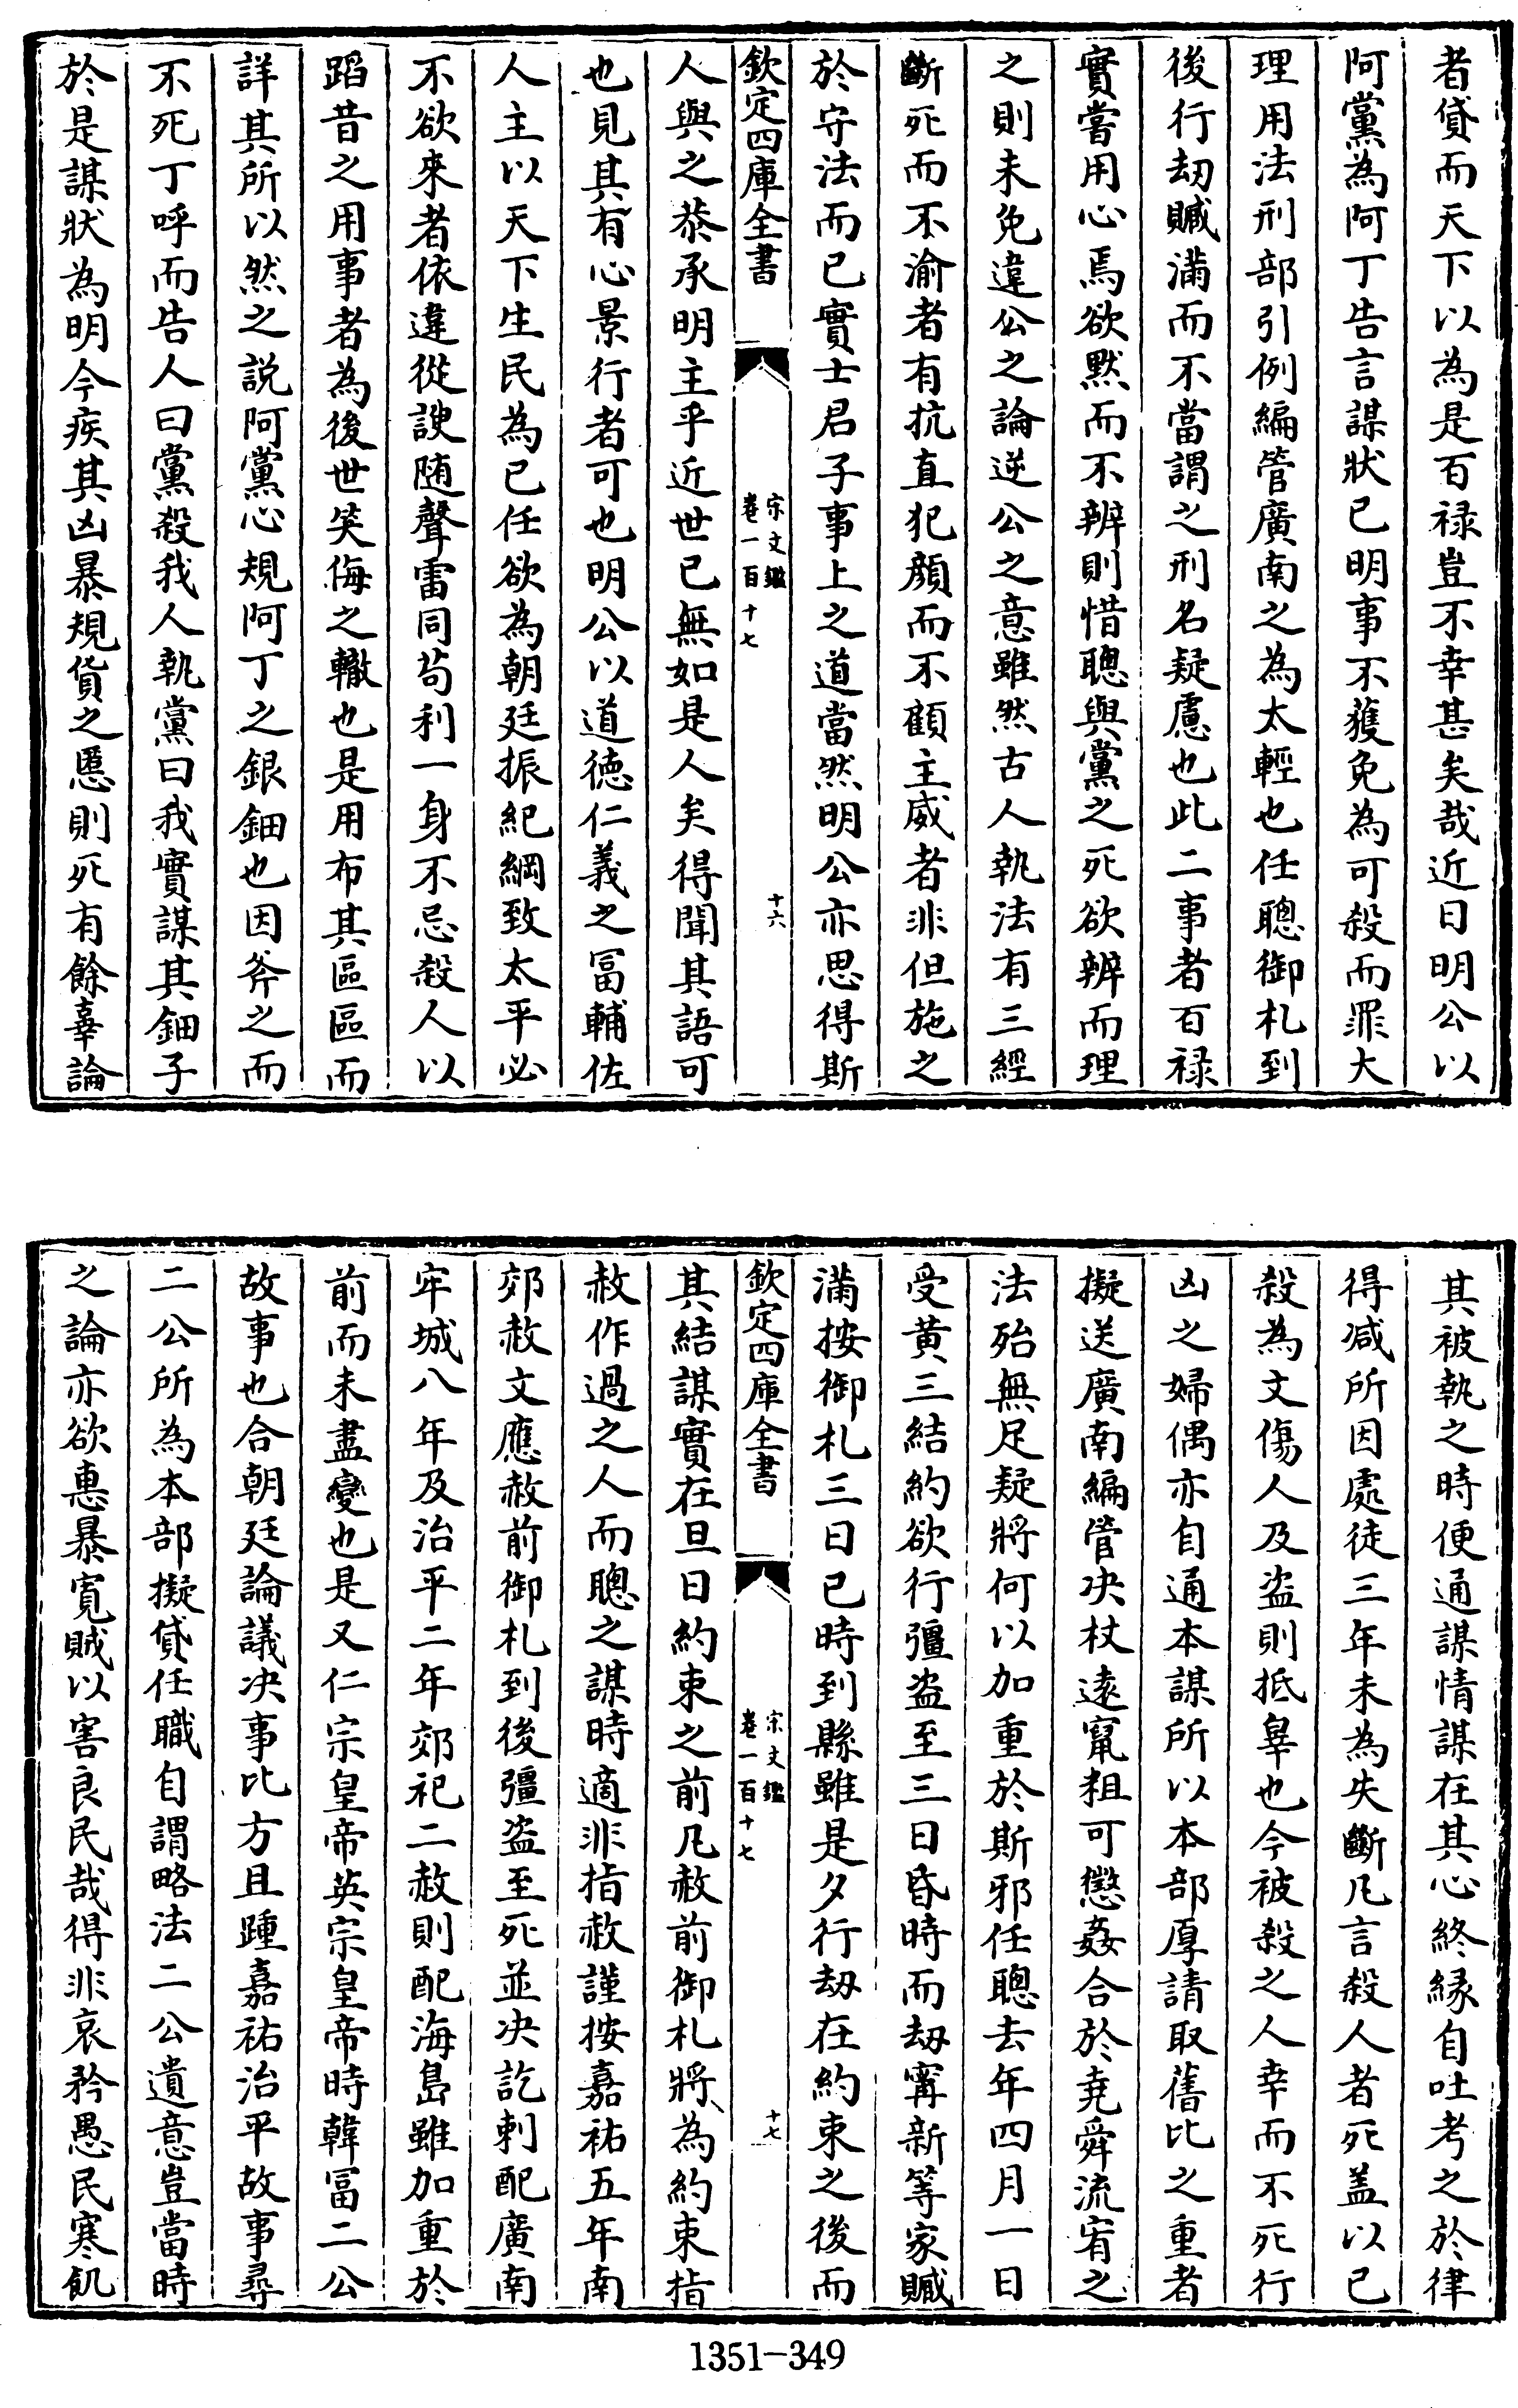 者貸而天下以為是百禄豈不幸甚矣哉近日明公以
阿黨為阿丁告言謀狀已明事不獲免為可殺而罪大
理用法刑部引例編管廣南之為太輕也任聰御札到
後行刼贓滿而不當謂之刑名疑慮也此二事者百禄
實嘗用心焉欲黙而不辨則惜聰與黨之死欲辨而理
之則未免違公之論逆公之意雖然古人執法有三經
斷死而不渝者有抗直犯顔而不顧主威者非但施之
於守法而已實士君子事上之道當然明公亦思得斯
欽定四庫全書
宋文鑑
卷一百十七
十六
人與之恭承明主乎近世已無如是人矣得聞其語可
也見其有心景行者可也明公以道徳仁義之冨輔佐
人主以天下生民為已任欲為朝廷振紀綱致太平必
不欲來者依違從諛随聲雷同苟利一身不忌殺人以
蹈昔之用事者為後世笑侮之轍也是用布其區區而
詳其所以然之説阿黨心規阿丁之銀鈿也因斧之而
不死丁呼而告人曰黨殺我人執黨曰我實謀其鈿子
於是謀狀為明今疾其凶暴規貨之慝則死有餘辜論
其被執之時便通謀情謀在其心終縁自吐考之於律
得减所因處徒三年未為失斷凡言殺人者死盖以已
殺為文傷人及盗則抵辠也今被殺之人幸而不死行
凶之婦偶亦自通本謀所以本部厚請取舊比之重者
擬送廣南編管决杖逺竄粗可懲姦合於堯舜流宥之
法殆無足疑將何以加重於斯邪任聰去年四月一日
受黄三結約欲行彊盗至三日昏時而刼寗新等家贓
滿按御札三日已時到縣雖是夕行刼在約束之後而
欽定四庫全書
宋文鑑
卷一百十七
十七
其結謀實在旦日約束之前凡赦前御札將為約束指
赦作過之人而聰之謀時適非指赦謹按嘉祐五年南
郊赦文應赦前御札到後彊盗至死並决訖刺配廣南
牢城八年及治平二年郊祀二赦則配海島雖加重於
前而未盡變也是又仁宗皇帝英宗皇帝時韓冨二公
故事也合朝廷論議决事比方且踵嘉祐治平故事尋
二公所為本部擬貸任職自謂略法二公遺意豈當時
之論亦欲惠暴寛賊以害良民哉得非哀矜愚民寒飢
1351-349